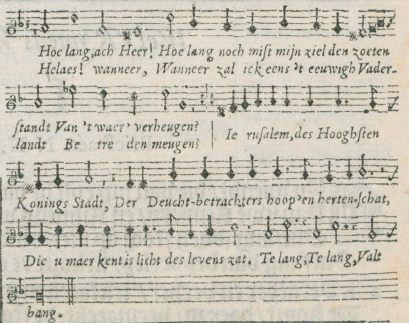 Hoe lang, ach Heer! Hoe lang noch mist mijn ziel den zoeten
Helaes! wanneer, Wanneer zal ick eens 't eeuwigh Vader-
standt Van 't waer verheugen?
landt Be tre den meugen?
Ie rusalem, des Hooghsten
Konings Stadt, Der Deucht-betrachters hoop en herten-schat,
Die u maer kent is licht des levens zat. Te lang, Te lang, Valt
bang.